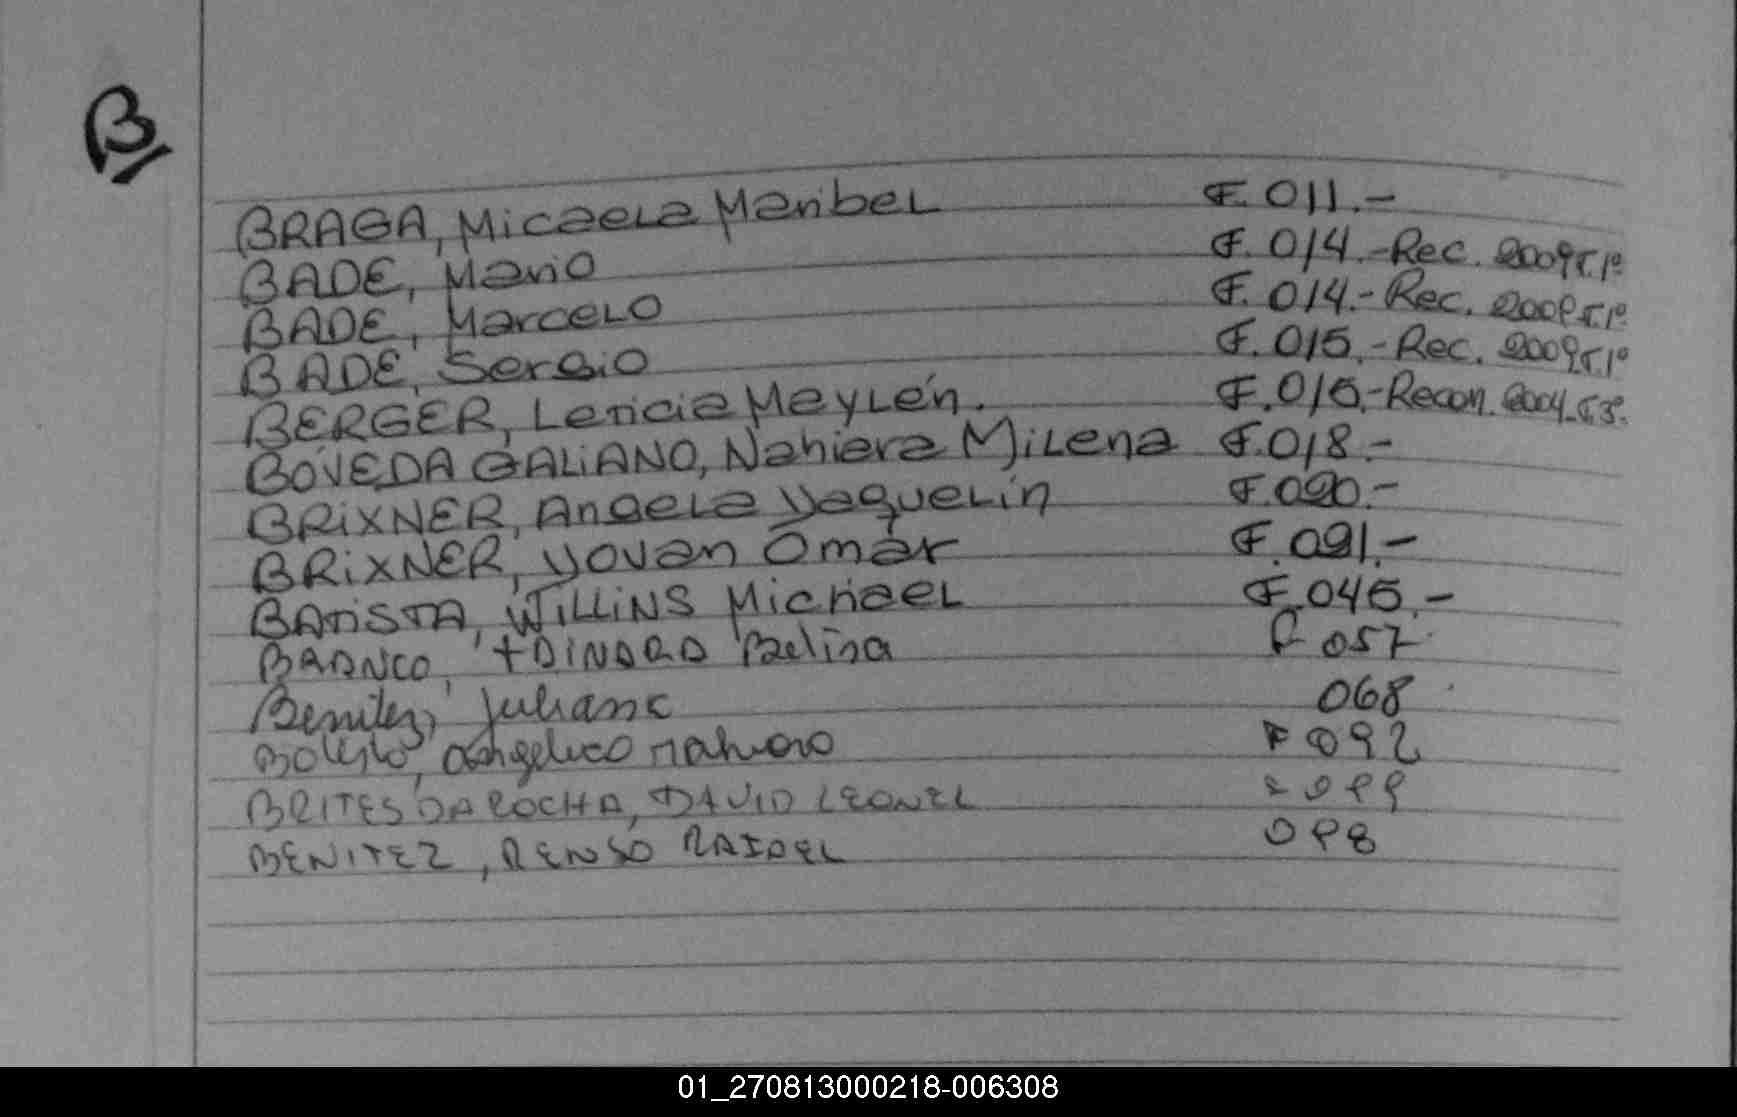 B
BRAGA, Micaela Maribel F. 011.-
BADE, Mario F. 014.-Rec. 2009 T.1º
BADE, Marcelo F. 014.-Rec. T.1º
BADE, Sergio F. 015.-Rec. 2009 T.1º
BERGER, Leticia Meylén. Recon. 2004
BOVEDA GALIANO, Nahiara Milena F. 018.-
BRIXNER, Angela Yaquelin
BRIXNER, Yovan Omar
BATISTA, WILLINS Michael
Belina 057
Benitez, Juliana 068
F 092
BRITES DA ROCHA, DAVID LEONEL
BENITEZ, RENSO RAFAEL
01_270813000218-006308